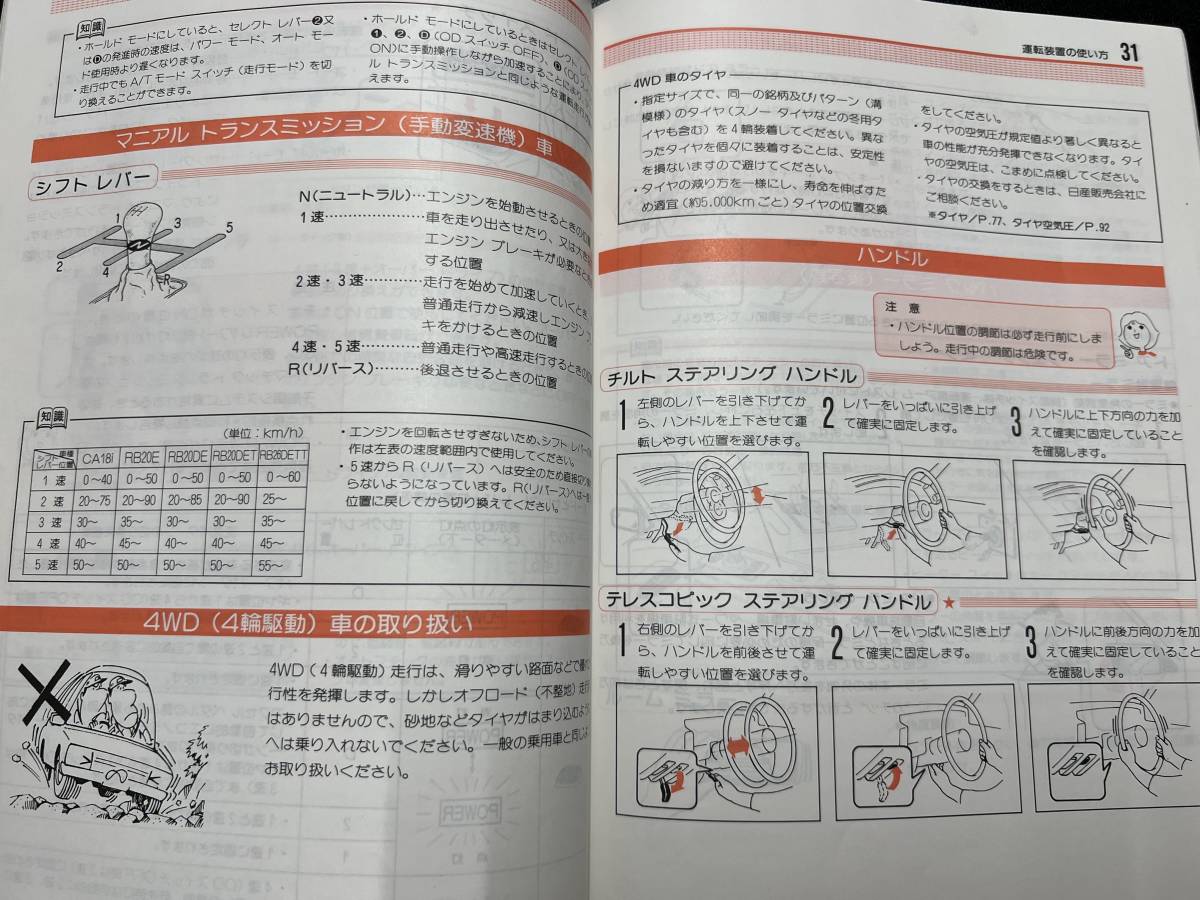 知識
・ホールド モードにしていると、セレクト レバー❷又
は❶の発進時の速度は、パワー モード、オート モー
ド使用時より遅くなります。
・走行中でもA/Tモード スイッチ(走行モード)を切
り換えることができます。
・ホールド モードにしているときはセレクト
❶、❷、D(ODスイッチOFF)、D(OD
ON)に手動操作しながら加速することによ
ル トランスミッションと同じような運転
えます。
マニアル トランスミッション(手動変速機)車
シフト レバー
1
3
5
2
4
R
N(ニュートラル)…エンジンを始動させるときの位
1速…………………車を走り出させたり、又は大き
エンジン ブレーキが必要なとき
する位置
2速・3速…………走行を始めて加速していくとき、
普通走行から減速しエンジン
キをかけるときの位置
4速・5速…………普通走行や高速走行するときの位
R(リバース)………後退させるときの位置
知識
(単位：km/h)
シフト レバー位置 車種 CA18i RB20E RB20DE RB20DET RB26DETT
1 速 0~40 0~50 0~50 0~50 0~60
2 速 20~75 20~90 20~85 20~90 25~
3 速 30~ 35~ 30~ 30~ 35~
4 速 40~ 45~ 40~ 40~ 45~
5 速 50~ 50~ 50~ 50~ 55~
・エンジンを回転させすぎないため、シフト レバーの
作は左表の速度範囲内で使用してください。
・5速からR(リバース)へは安全のため直接切り
らないようになっています。R(リバース)へは一
位置に戻してから切り換えてください。
4WD(4輪駆動)車の取り扱い
4WD(4輪駆動)走行は、滑りやすい路面などで優
行性を発揮します。しかしオフロード(不整地)走行
はありませんので、砂地などタイヤがはまり込むよう
へは乗り入れないでください。一般の乗用車と同じよ
お取り扱いください。
運転装置の使い方 31
4WD 車のタイヤ
・指定サイズで、同一の銘柄及びパターン(溝
模様)のタイヤ(スノー タイヤなどの冬用タ
イヤも含む)を4輪装着してください。異な
ったタイヤを個々に装着することは、安定性
を損ないますので避けてください。
・タイヤの減り方を一様にし、寿命を伸ばすた
め適宜(約5,000kmごと)タイヤの位置交換
をしてください。
・タイヤの空気圧が規定値より著しく異なると
車の性能が充分発揮できなくなります。タイ
ヤの空気圧は、こまめに点検してください。
・タイヤの交換をするときは、日産販売会社に
ご相談ください。
※タイヤ/P.77、タイヤ空気圧/P.92
ハンドル
注 意
・ハンドル位置の調節は必ず走行前にしま
しょう。走行中の調節は危険です。
チルト ステアリング ハンドル
1 左側のレバーを引き下げてか
ら、ハンドルを上下させて運
転しやすい位置を選びます。
2 レバーをいっぱいに引き上げ
て確実に固定します。
3 ハンドルに上下方向の力を加
えて確実に固定していること
を確認します。
テレスコピック ステアリング ハンドル ★
1 右側のレバーを引き下げてか
ら、ハンドルを前後させて運
転しやすい位置を選びます。
2 レバーをいっぱいに引き上げ
て確実に固定します。
3 ハンドルに前後方向の力を加
えて確実に固定していること
を確認します。